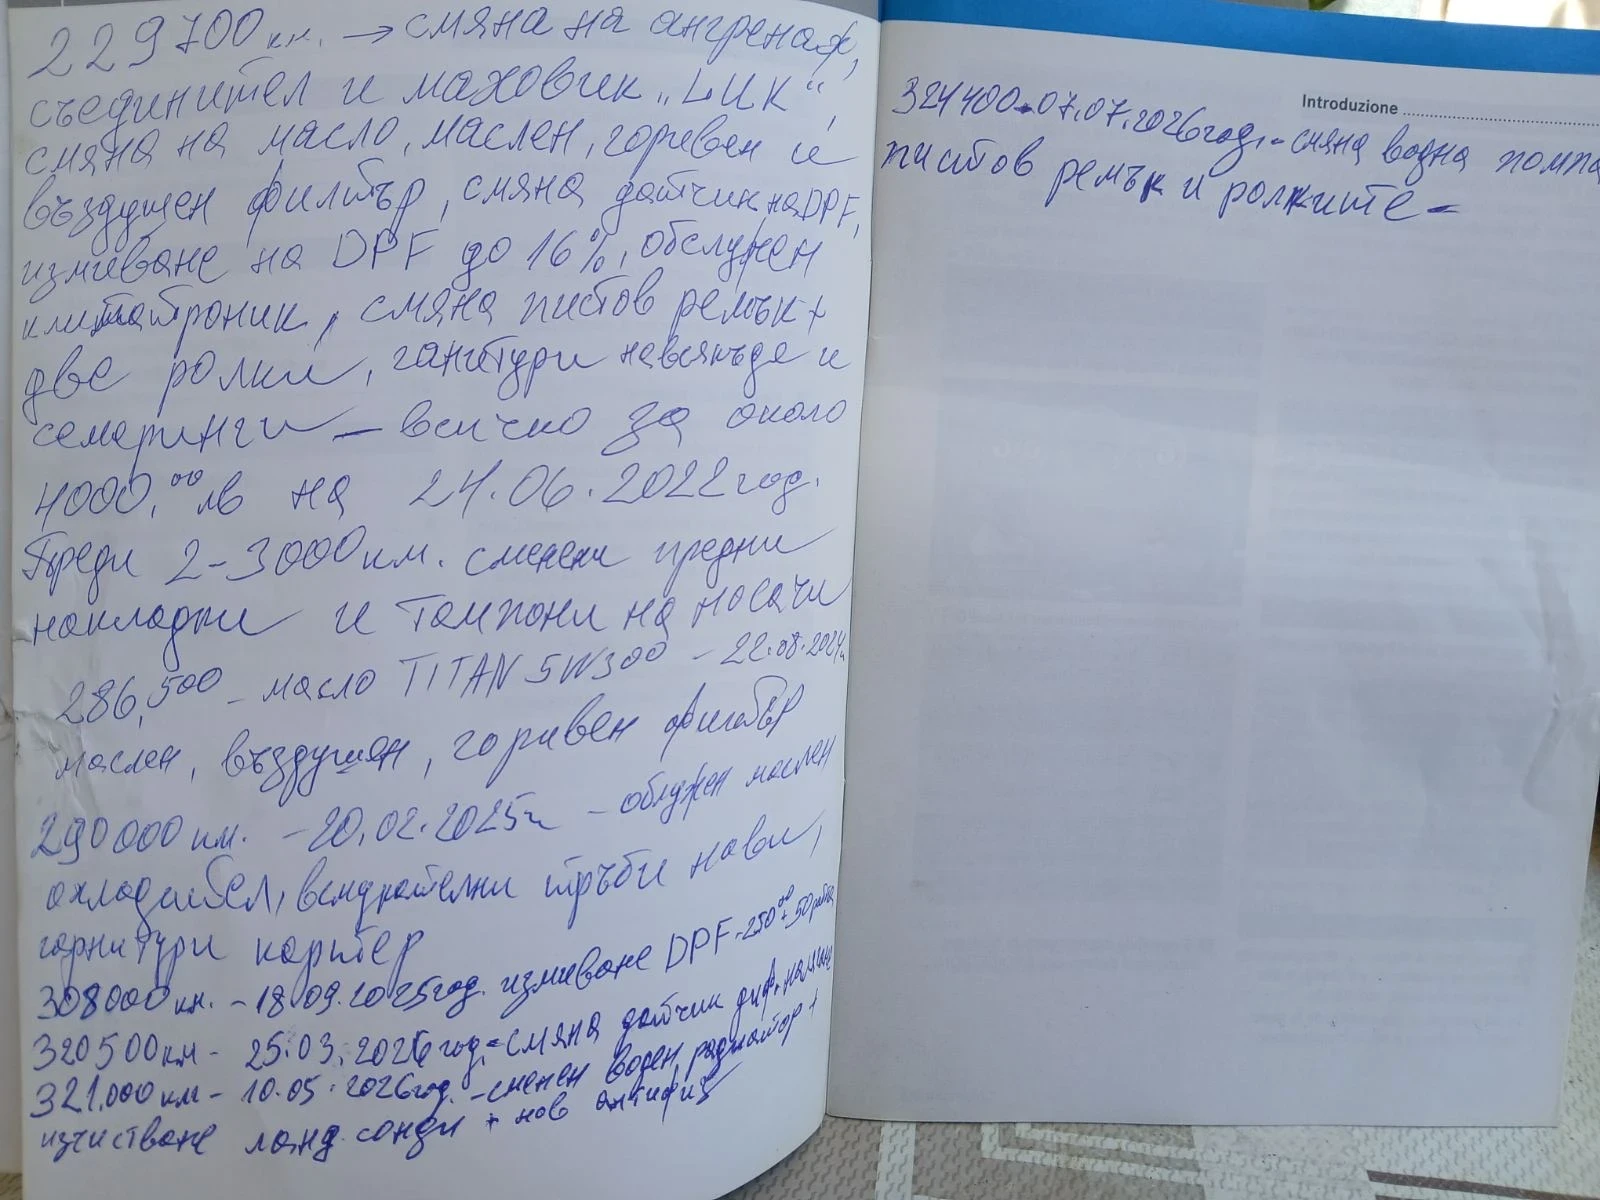 229700 км. → смяна на ангренаж,
съединител и маховик „LUK“,
смяна на масло, маслен, горивен и
въздушен филтър, смяна датчик на DPF,
измиване на DPF до 16%, обслужен
климатроник, смяна пистов ремък +
две ролки, ганитури навсякъде и
семеринги – всичко за около
4000,00 лв на 24.06.2022 год.
Преди 2-3000 км. сменени предни
накладки и тампони на носачи
286,500 – масло TITAN 5W300 – 22.08.2024г
маслен, въздушен, горивен филтър
290000 км. – 20.02.2025г – облужен маслен
охладител, вендрателни тръби нови,
гарнитури картер
308000 км. – 18.09.2025 год. измиване DPF – 250,00 + 50
320500 км – 25.03.2026 год. – смяна датчик диф.
321.000 км – 10.05.2026 год. – сменен воден радиатор +
изчистване ланд. сонди + нов антифриз
Introduzione
324400 – 07.07.2026 год. – смяна водна помпа
пистов ремък и ролките –